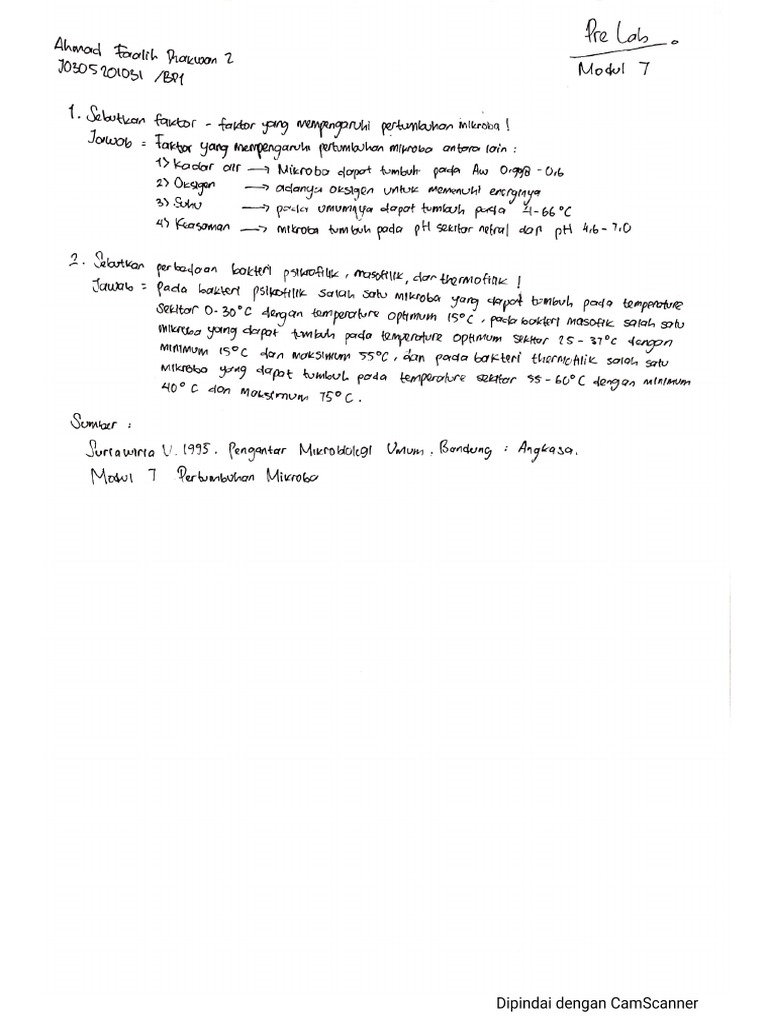 Pre Lab.
Modul 7
Ahmad Fadlih Prakoson 2
J0305201031 /BP1
1. Sebutkan faktor - faktor yang mempengaruhi pertumbuhan mikroba !
Jawab = Faktor yang mempengaruhi pertumbuhan mikroba antara lain :
1) Kadar air → Mikroba dapat tumbuh pada Aw 0.998 - 0.6
2) Oksigen → adanya oksigen untuk memenuhi energinya
3) Suhu → pada umumnya dapat tumbuh pada 4-66°C
4) Keasaman → mikroba tumbuh pada pH sekitar netral dari pH 4.6 - 7.0
2. Sebutkan perbedaan bakteri psikrofilik, masofilik, dan thermofilik !
Jawab = pada bakteri psikofilik salah satu mikroba yang dapat tumbuh pada temperature
sekitar 0-30°C dengan temperature optimum 15°C, pada bakteri masofik salah satu
mikroba yang dapat tumbuh pada temperature optimum sekitar 25 - 37°C dengan
minimum 15°C dan maksimum 55°C, dan pada bakteri thermofilik salah satu
mikroba yang dapat tumbuh pada temperature sekitar 55 - 60°C dengan minimum
40°C dan maksimum 75°C.
Sumber :
Suriawiria U. 1995. Pengantar Mikrobiologi Umum. Bandung : Angkasa.
Modul 7 Pertumbuhan Mikroba
Dipindai dengan CamScanner